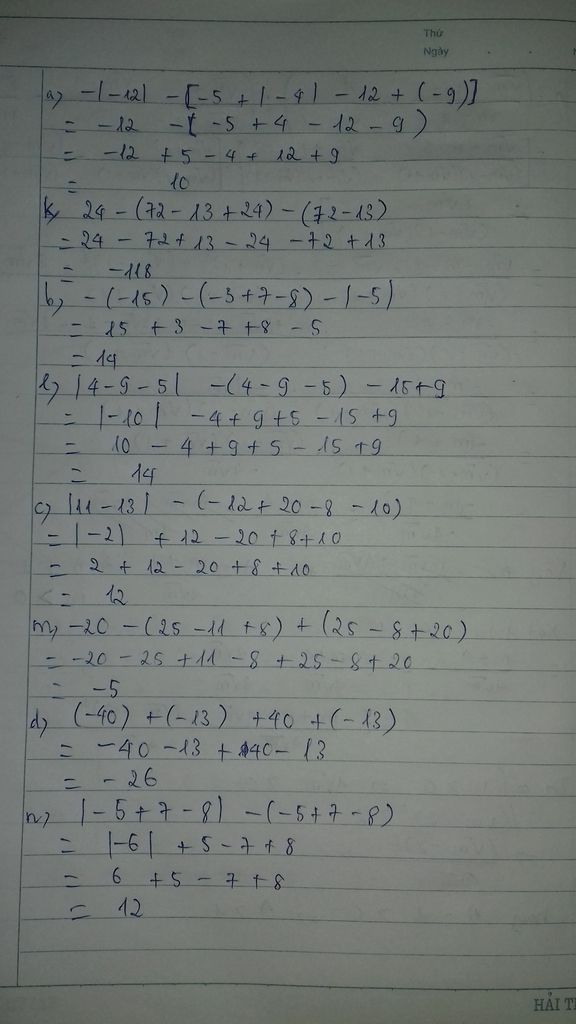 Thứ
Ngày
a) -|-12| - [-5 + |-4| - 12 + (-9)]
= -12 - ( -5 + 4 - 12 - 9 )
= -12 + 5 - 4 + 12 + 9
= 10
k) 24 - (72 - 13 + 24) - (72 - 13)
= 24 - 72 + 13 - 24 - 72 + 13
= -118
b) - (-15) - (-3 + 7 - 8) - |-5|
= 15 + 3 - 7 + 8 - 5
= 14
l) |4 - 9 - 5| - (4 - 9 - 5) - 15 + 9
= |-10| - 4 + 9 + 5 - 15 + 9
= 10 - 4 + 9 + 5 - 15 + 9
= 14
c) |11 - 13| - (-12 + 20 - 8 - 10)
= |-2| + 12 - 20 + 8 + 10
= 2 + 12 - 20 + 8 + 10
= 12
m) -20 - (25 - 11 + 8) + (25 - 8 + 20)
= -20 - 25 + 11 - 8 + 25 - 8 + 20
= -5
d) (-40) + (-13) + 40 + (-13)
= -40 - 13 + 40 - 13
= -26
n) |-5 + 7 - 8| - (-5 + 7 - 8)
= |-6| + 5 - 7 + 8
= 6 + 5 - 7 + 8
= 12
HẢI